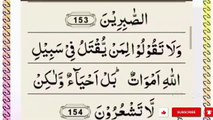 الصّٰبِرِیْنَ 153
وَلَا تَقُوْلُوْا لِمَنْ یُّقْتَلُ فِیْ سَبِیْلِ
اللّٰهِ اَمْوَاتٌ ؕ بَلْ اَحْیَآءٌ وَّلٰكِنْ
لَّا تَشْعُرُوْنَ 154